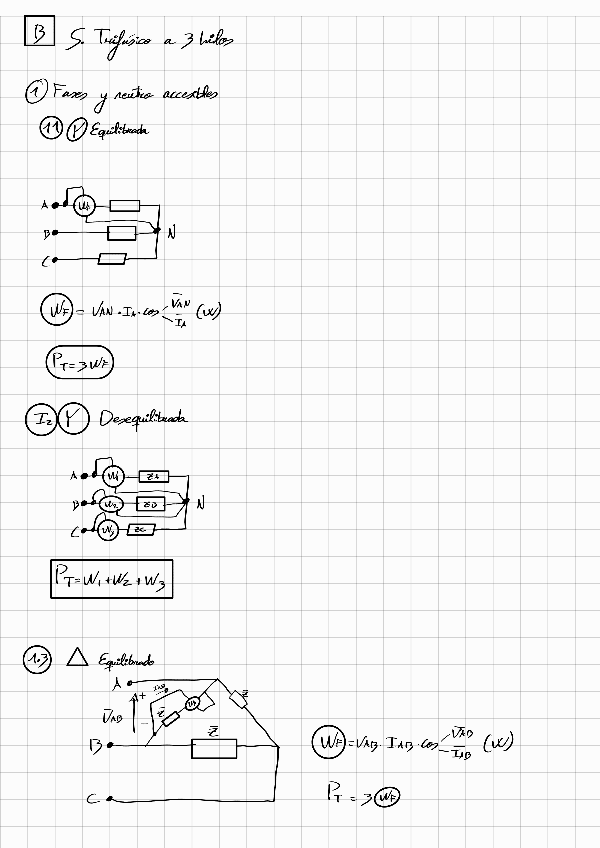 B S. Trifásico a 3 hilos
1 Fases y neutro accesibles
11 Y Equilibrada
A WF
B N
C
WF = VAN · IA · cos VAN IA (W)
PT = 3 WF
I2 Y Desequilibrada
A W1 ZA
B W2 ZB N
C W3 ZC
PT = W1 + W2 + W3
1.3 △ Equilibrado
A
+ IAB WF Z
VAB Z
- Z
B
WF = VAB · IAB · cos VAB IAB (W)
C
PT = 3 WF